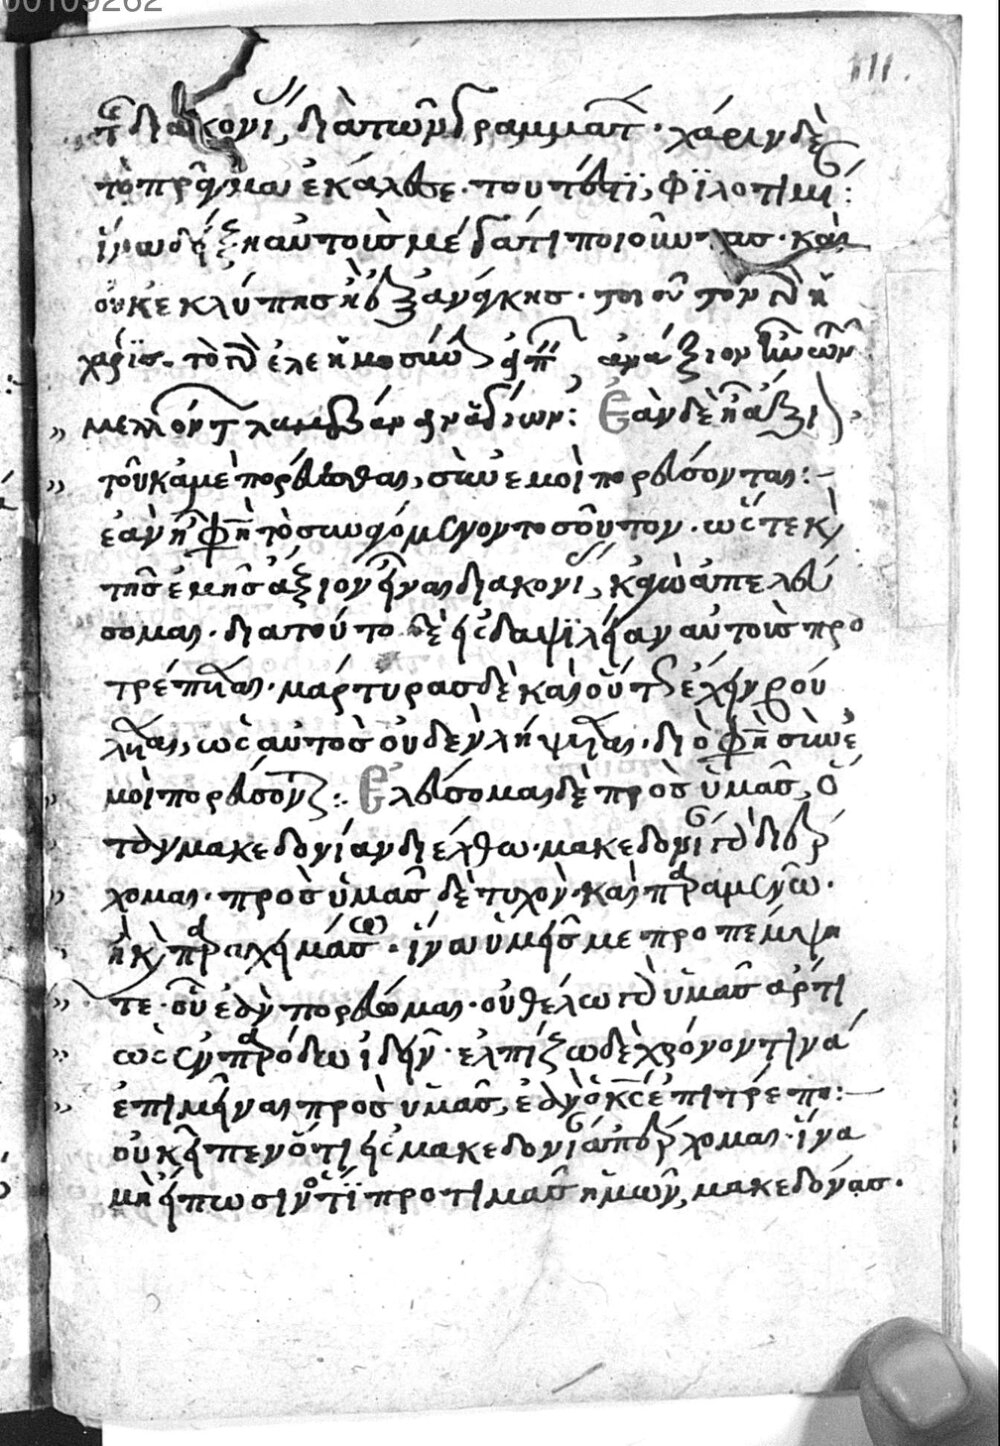 00109262
111.
τῆ διακονί, διὰ τῶν γραμμάτ. χάριν δὲ
τὸ πρᾶγμα ἐκάλεσε. τουτέστι, φϊλοτιμί:
ἵνα δείξη αὐτοῖς μέγα τι ποιοῦντας. καὶ
οὐκ ἐκ λύπης ἢ ἐξ ἀνάγκης. τοιοῦτον γὰρ ἡ
χάρϊς. τὸ γὰρ ἐλεημοσύν εἰπεῖν ἀνάξιον ἦν τῶν
μελλόντ λαμβάνειν ἁγίων: Ἐὰν δὲ ἦ ἄξι
τοῦ κἀμὲ πορεύεσθαι, σὺν ἐμοὶ πορεύσονται:
ἐὰν ἦ φησὶ τὸ συναγόμενον τοσοῦτον. ὥστε κ
τῆς ἐμῆς ἄξιον εἶναι διακονί, κἀγὼ ἀπελεύ
σομαι. διὰ τούτο δὲ εἰς δαψϊλείαν αὐτοὺς προ
τρέπεται. μάρτυρας δὲ καὶ οὕτως ἔχειν βού
λεται, ὡς αὐτὸς οὐδὲν λήψεται. διὸ φησὶ σὺν ἐ
μοὶ πορεύσονται: Ἐλεύσομαι δὲ πρὸς ὑμᾶς, ὅ
ταν μακεδονίαν διέλθω. μακεδονί γὰρ διέρ
χομαι. πρὸς ὑμᾶς δὲ τυχὸν καὶ παραμενῶ.
ἢ κ παραχειμάσω. ἵνα ὑμεῖς με προπέμψη
τε. οὗ ἐὰν πορεύωμαι. οὐ θέλω γὰρ ὑμᾶς ἄρτι
ὡς ἐν παρόδω ἰδεῖν. ἐλπίζω δὲ χρόνον τινά
ἐπιμεῖναι πρὸς ὑμᾶς, ἐὰν ὁ κς ἐπιτρέπη:
οὐκ εἶπεν ὅτι εἰς μακεδονί ἀπέρχομαι. ἵνα
μὴ εἴπωσιν ὅτϊ προτιμᾶς ἡμῶν, μακεδόνας.